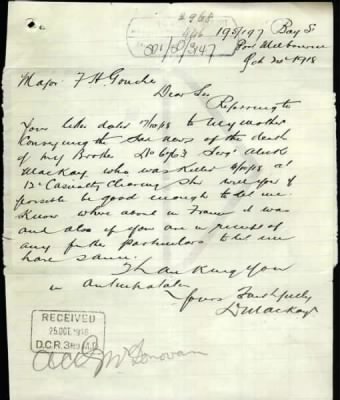 2968
195/197 Bay St
Port Melbourne
Oct 24 1918
Major F H Gouche
Dear Sir
Referring to
Your letter dated 7/10/18 to My mother
Conveying the sad news of the death
of My Brother No 6703 Sergt
MacKay who was Killed at
13th Casualty Clearing Stn will you if
possible be good enough to let me
Know where about in France it was
and also if you are in receipt of
any further particulars to let me
have same.
Thanking you
in anticipation
Yours Faithfully
MacKay
RECEIVED
25 OCT 1918
D.C.R. 3RD M.D.
McDonovan